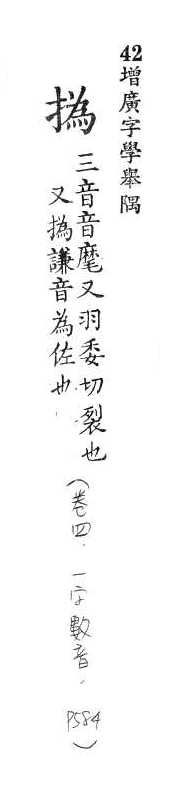 42增廣字學舉隅
撝
三音音麾又羽委切裂也
又撝謙音為佐也
（卷四．一字數音．P584）